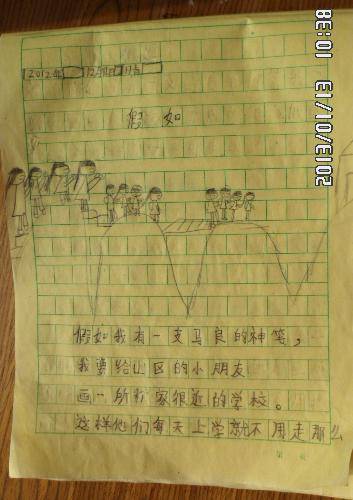 2013/01/13 10:38
2012年12月
假如
假如我有一支马良的神笔，
我要给山区的小朋友
画一所离家很近的学校。
这样他们每天上学就不用走那么